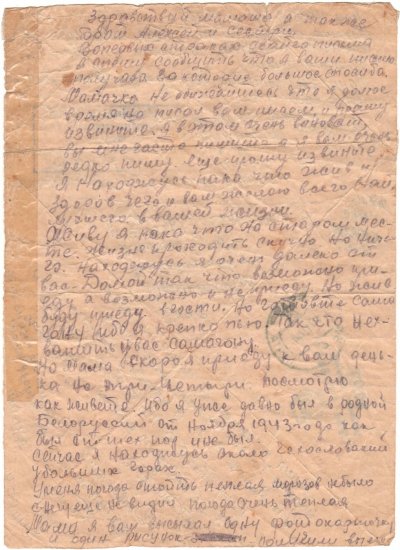 Здравствуй мамаша а так же
брат Алексей и сестры
В первых строках своего письма
я спешу сообщить что я ваши письма
получил за которые большое спасибо.
Мамочка не обижайтесь что я долгое
время не писал вам писем и прошу
извините. я в этом очень виноват
вы мне часто пишите а я вам очень
редко пишу еще прошу извините
я нахожусь пока что жив и
здоров чего и вам желаю всего наи
лучшего в вашей жизни.
Живу я пока что на старом мес-
те. Жизнь проходить скучно но ниче
го. Нахожусь я очень далеко от
вас. Домой так что возможно при-
еду а возможно и не приеду. Но жив
буду приеду в гости. Но готовьте само
гону ибо я крепко пью так что нех-
ватить у вас самагону.
Но мама скора я приеду к вам день-
ка на три четыри. посмотрю
как живете ибо я уже давно был в родной
Белоруссии от ноября 1943 года как
был от тех пор и не был.
сейчас я нахожусь около чехословакий
у больших горах.
У меня погода стоить теплая морозов не было
снегу еще не видил погода очень теплая
Мама я вам высылал одну фотокарточку
и один рисунок получили вы